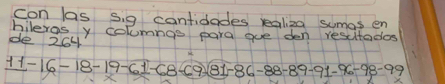 con las sig cantidades realiza sumas en
hileras y columnas para que den resultados
de 264
11-16-18-19-61-68-69-81-86-88-89-91-96-98-99